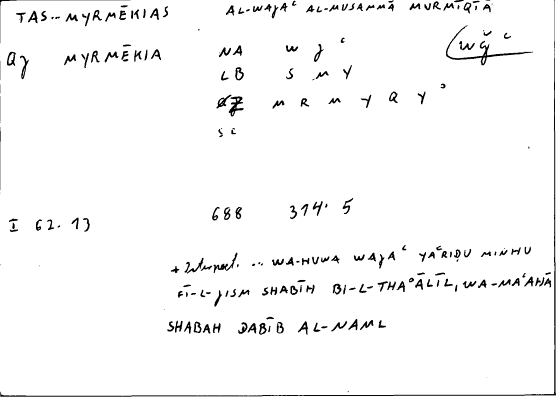 TAS... MYRMĒKIAS AL-WAJAʿ AL-MUSAMMĀ MURMĪQIYĀ
QJ MYRMĒKIA NA W J ʿ (WǦʿ
LB S M Y
M R M Y Q Y ʾ
SC
I 62.13 688 314.5
+ Interpret. ... WA-HUWA WAJAʿ YAʿRIḌU MINHU
FĪ-L-JISM SHABĪH BI-L-THAʾĀLĪL, WA-MAʿAHĀ
SHABAH DABĪB AL-NAML